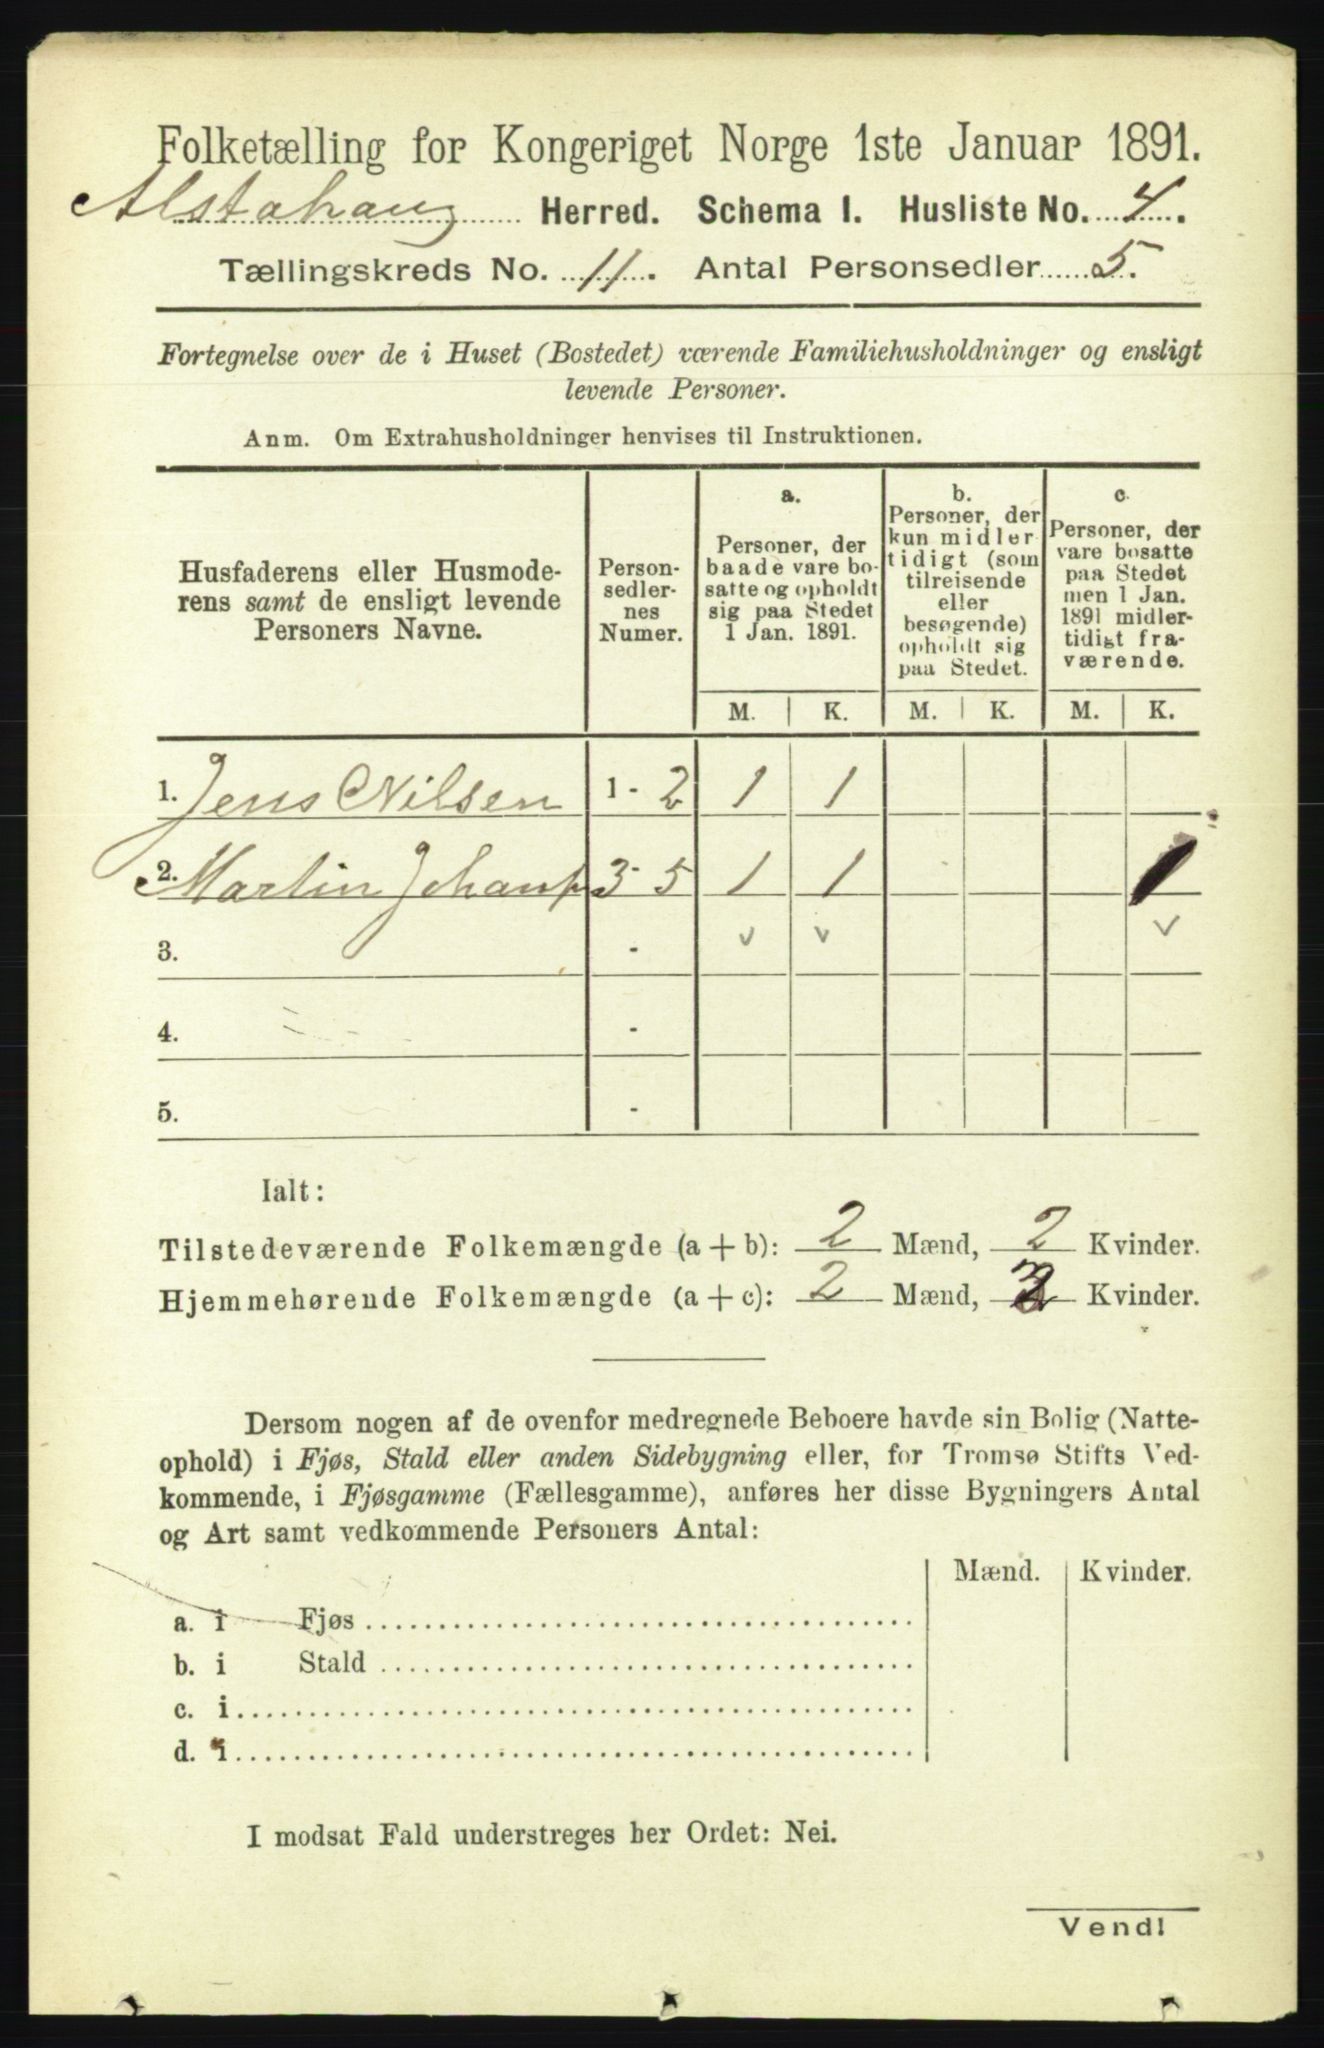 Folketælling for Kongeriget Norge 1ste Januar 1891.
Alstahaug Herred. Schema I. Husliste No. 4.
Tællingskreds No. 11. Antal Personsedler 5.
Fortegnelse over de i Huset (Bostedet) værende Familiehusholdninger og ensligt
levende Personer.
Anm. Om Extrahusholdninger henvises til Instruktionen.
Husfaderens eller Husmode-
rens samt de ensligt levende
Personers Navne.
Person-
sedler-
nes
Numer.
a.
Personer, der
baade vare bo-
satte og opholdt
sig paa Stedet
1 Jan. 1891.
b.
Personer, der
kun midler
tidigt (som
tilreisende
eller
besøgende)
opholdt sig
paa Stedet.
c.
Personer, der
vare bosatte
paa Stedet
men 1 Jan.
1891 midler-
tidigt fra-
værende.
M. K. M. K. M. K.
1. Jens Nilsen 1 - 2 1 1
2. Martin 3 - 5 1 1 1
3. - v v v
4. -
5. -
Ialt:
Tilstedeværende Folkemængde (a + b): 2 Mænd, 2 Kvinder.
Hjemmehørende Folkemængde (a + c): 2 Mænd, Kvinder.
Dersom nogen af de ovenfor medregnede Beboere havde sin Bolig (Natte-
ophold) i Fjøs, Stald eller anden Sidebygning eller, for Tromsø Stifts Ved-
kommende, i Fjøsgamme (Fællesgamme), anføres her disse Bygningers Antal
og Art samt vedkommende Personers Antal:
Mænd. Kvinder.
a. i Fjøs
b. i Stald
c. i
d. i
I modsat Fald understreges her Ordet: Nei.
Vend!